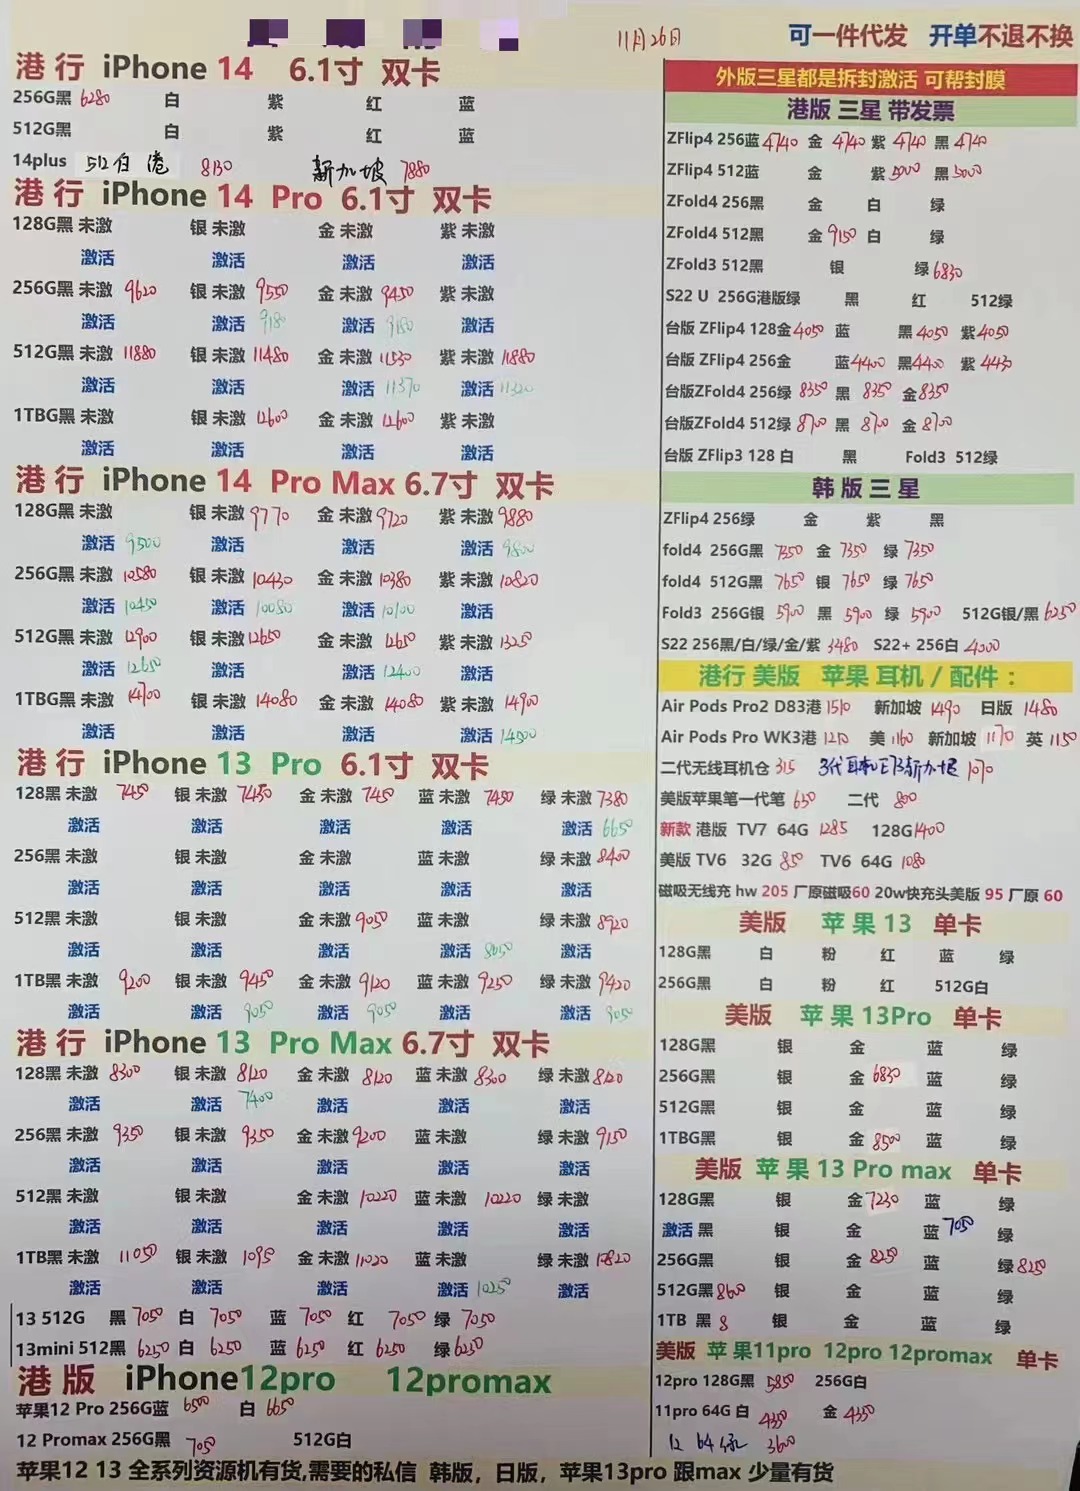 11月26日
可一件代发 开单不退不换
港 行 iPhone 14 6.1寸 双卡
256G黑 6280 白 紫 红 蓝
512G黑 白 紫 红 蓝
14plus 512白 港 8130 新加坡 7880
港 行 iPhone 14 Pro 6.1寸 双卡
128G黑 未激 银 未激 金 未激 紫 未激
激活 激活 激活 激活
256G黑 未激 9620 银 未激 9550 金 未激 9450 紫 未激
激活 激活 9180 激活 9180 激活
512G黑 未激 11880 银 未激 11480 金 未激 11530 紫 未激 11880
激活 激活 激活 11370 激活 11320
1TBG黑 未激 银 未激 12600 金 未激 12600 紫 未激
激活 激活 激活 激活
港 行 iPhone 14 Pro Max 6.7寸 双卡
128G黑 未激 银 未激 9770 金 未激 9720 紫 未激 9880
激活 9500 激活 激活 激活 9800
256G黑 未激 10580 银 未激 10430 金 未激 10380 紫 未激 10820
激活 10450 激活 10080 激活 10100 激活
512G黑 未激 12900 银 未激 12650 金 未激 12650 紫 未激 13250
激活 12650 激活 激活 12400 激活
1TBG黑 未激 14700 银 未激 14080 金 未激 14080 紫 未激 14900
激活 激活 激活 激活 14500
港 行 iPhone 13 Pro 6.1寸 双卡
128黑 未激 7450 银 未激 7450 金 未激 7450 蓝 未激 7450 绿 未激 7380
激活 激活 激活 激活 激活 6650
256黑 未激 银 未激 金 未激 蓝 未激 绿 未激 8400
激活 激活 激活 激活 激活
512黑 未激 银 未激 金 未激 9050 蓝 未激 绿 未激 8920
激活 激活 激活 激活 8050 激活
1TB黑 未激 9200 银 未激 9450 金 未激 9120 蓝 未激 9250 绿 未激 9420
激活 激活 9050 激活 9050 激活 激活 9050
港 行 iPhone 13 Pro Max 6.7寸 双卡
128黑 未激 8300 银 未激 8120 金 未激 8120 蓝 未激 8300 绿 未激 8120
激活 激活 7400 激活 激活 激活
256黑 未激 9350 银 未激 9350 金 未激 9200 蓝 未激 绿 未激 9150
激活 激活 激活 激活 激活
512黑 未激 银 未激 金 未激 10220 蓝 未激 10220 绿 未激
激活 激活 激活 激活 激活
1TB黑 未激 11050 银 未激 1095 金 未激 11020 蓝 未激 绿 未激 10820
激活 激活 激活 激活 10250 激活
13 512G 黑 7050 白 7050 蓝 7050 红 7050 绿 7050
13mini 512黑 6250 白 6250 蓝 6250 红 6250 绿 6250
港 版 iPhone12pro 12promax
苹果12 Pro 256G蓝 6500 白 6650
12 Promax 256G黑 7050 512G白
苹果12 13 全系列资源机有货,需要的私信 韩版，日版，苹果13pro 跟max 少量有货
外版三星都是拆封激活 可帮封膜
港版 三星 带发票
ZFlip4 256蓝 4740 金 4740 紫 4740 黑 4740
ZFlip4 512蓝 金 紫 5000 黑 5000
ZFold4 256黑 金 白 绿
ZFold4 512黑 金 9150 白 绿
ZFold3 512黑 银 绿 6830
S22 U 256G港版绿 黑 红 512绿
台版 ZFlip4 128金 4050 蓝 黑 4050 紫 4050
台版 ZFlip4 256金 蓝 4400 黑 4400 紫 4430
台版ZFold4 256绿 8350 黑 8350 金 8350
台版ZFold4 512绿 8700 黑 8700 金 8700
台版 ZFlip3 128 白 黑 Fold3 512绿
韩 版 三 星
ZFlip4 256绿 金 紫 黑
fold4 256G黑 7350 金 7350 绿 7350
fold4 512G黑 7650 银 7650 绿 7650
Fold3 256G银 5900 黑 5900 绿 5900 512G银/黑 6250
S22 256黑/白/绿/金/紫 3480 S22+ 256白 4000
港行 美版 苹果 耳机 / 配件：
Air Pods Pro2 D83港 1510 新加坡 1490 日版 1480
Air Pods Pro WK3港 1210 美 1160 新加坡 1170 英 1150
二代无线耳机仓 315 3代耳机E73新加坡 1070
美版苹果笔一代笔 650 二代 800
新款 港版 TV7 64G 1285 128G 1400
美版 TV6 32G 850 TV6 64G 1080
磁吸无线充 hw 205 厂原磁吸60 20w快充头美版 95 厂原 60
美版 苹 果 13 单卡
128G黑 白 粉 红 蓝 绿
256G黑 白 粉 红 512G白
美版 苹 果 13Pro 单卡
128G黑 银 金 蓝 绿
256G黑 银 金 6830 蓝 绿
512G黑 银 金 蓝 绿
1TBG黑 银 金 8500 蓝 绿
美版 苹 果 13 Pro max 单卡
128G黑 银 金 7230 蓝 绿
激活 黑 银 金 蓝 7050 绿
256G黑 银 金 8250 蓝 绿 8250
512G黑 8600 银 金 蓝 绿
1TB 黑 8 银 金 蓝 绿
美版 苹 果11pro 12pro 12promax 单卡
12pro 128G黑 5850 256G白
11pro 64G 白 4350 金 4350
12 64绿 3600